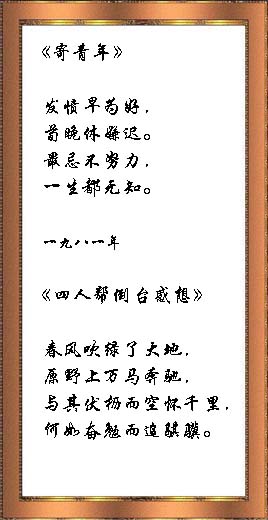 《寄青年》
发愤早为好，
苟晚休嫌迟。
最忌不努力，
一生都无知。
一九八一年
《四人帮倒台感想》
春风吹绿了大地，
原野上万马奔驰，
与其伏枥而空怀千里，
何如奋勉而追骐骥。